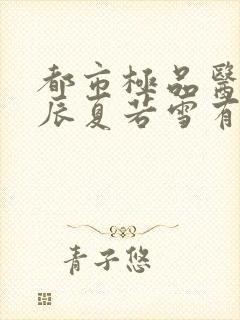 都市極品醫
辰夏若雪有
青子悠